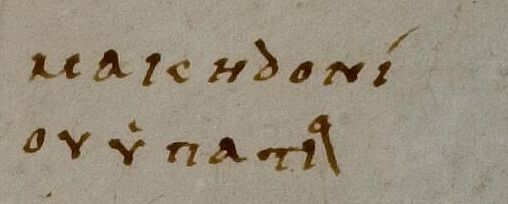 μακηδονί
ου ὑπατι